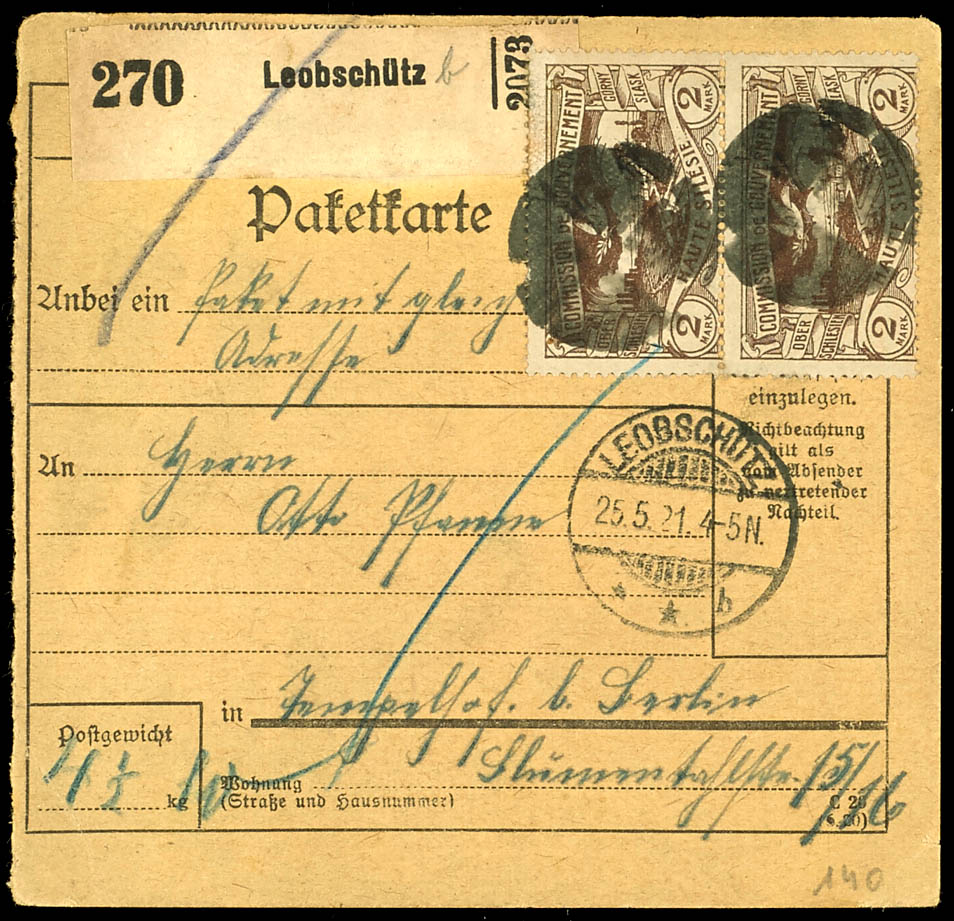 270 Leobschütz b 2073
Paketkarte
COMMISSION DE GOUVERNEMENT
HAUTE SILESIE
GORNY SLASK
OBER SCHLESIEN
2 MARK
2 MARK
COMMISSION DE GOUVERNEMENT
HAUTE SILESIE
GORNY SLASK
OBER SCHLESIEN
2 MARK
2 MARK
Anbei ein Paket mit gleich
Adresse
einzulegen.
Nichtbeachtung
gilt als
vom Absender
zu vertretender
Nachteil.
An Herrn
Otto
LEOBSCHÜTZ
25.5.21.4-5N.
* * b
in Tempelhof. b. Berlin
Postgewicht
4 1/2 kg
Wohnung
(Straße und Hausnummer)
15/16
C 28
140